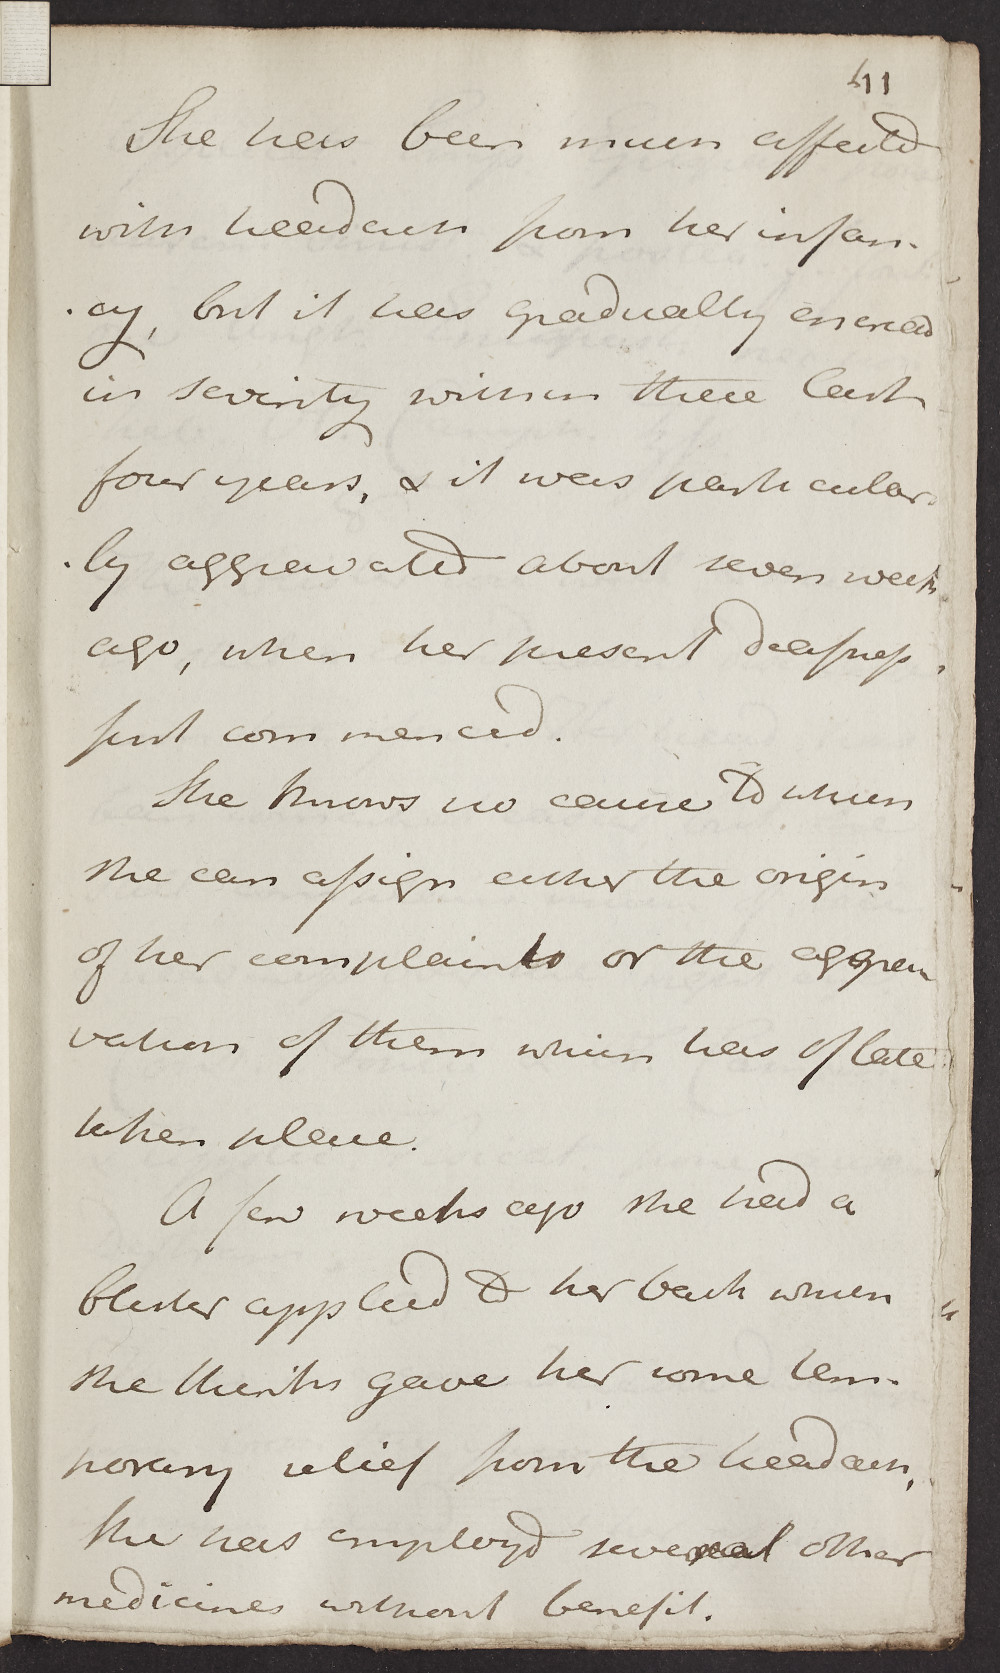 41
She has been much affected
with headach from her infan-
-cy, but it has gradually encread
in severity within these last
four years, & it was particular-
-ly aggravated about seven weeks
ago, when her present deafness
first commenced.
She knows no cause to which
she can assign either the origin
of her complaints or the aggra
vation of them which has of late
taken place.
A few weeks ago she had a
blister applied to her back which
she thinks gave her some tem-
porary relief from the headach,
She has employd several other
medicines without benefit.